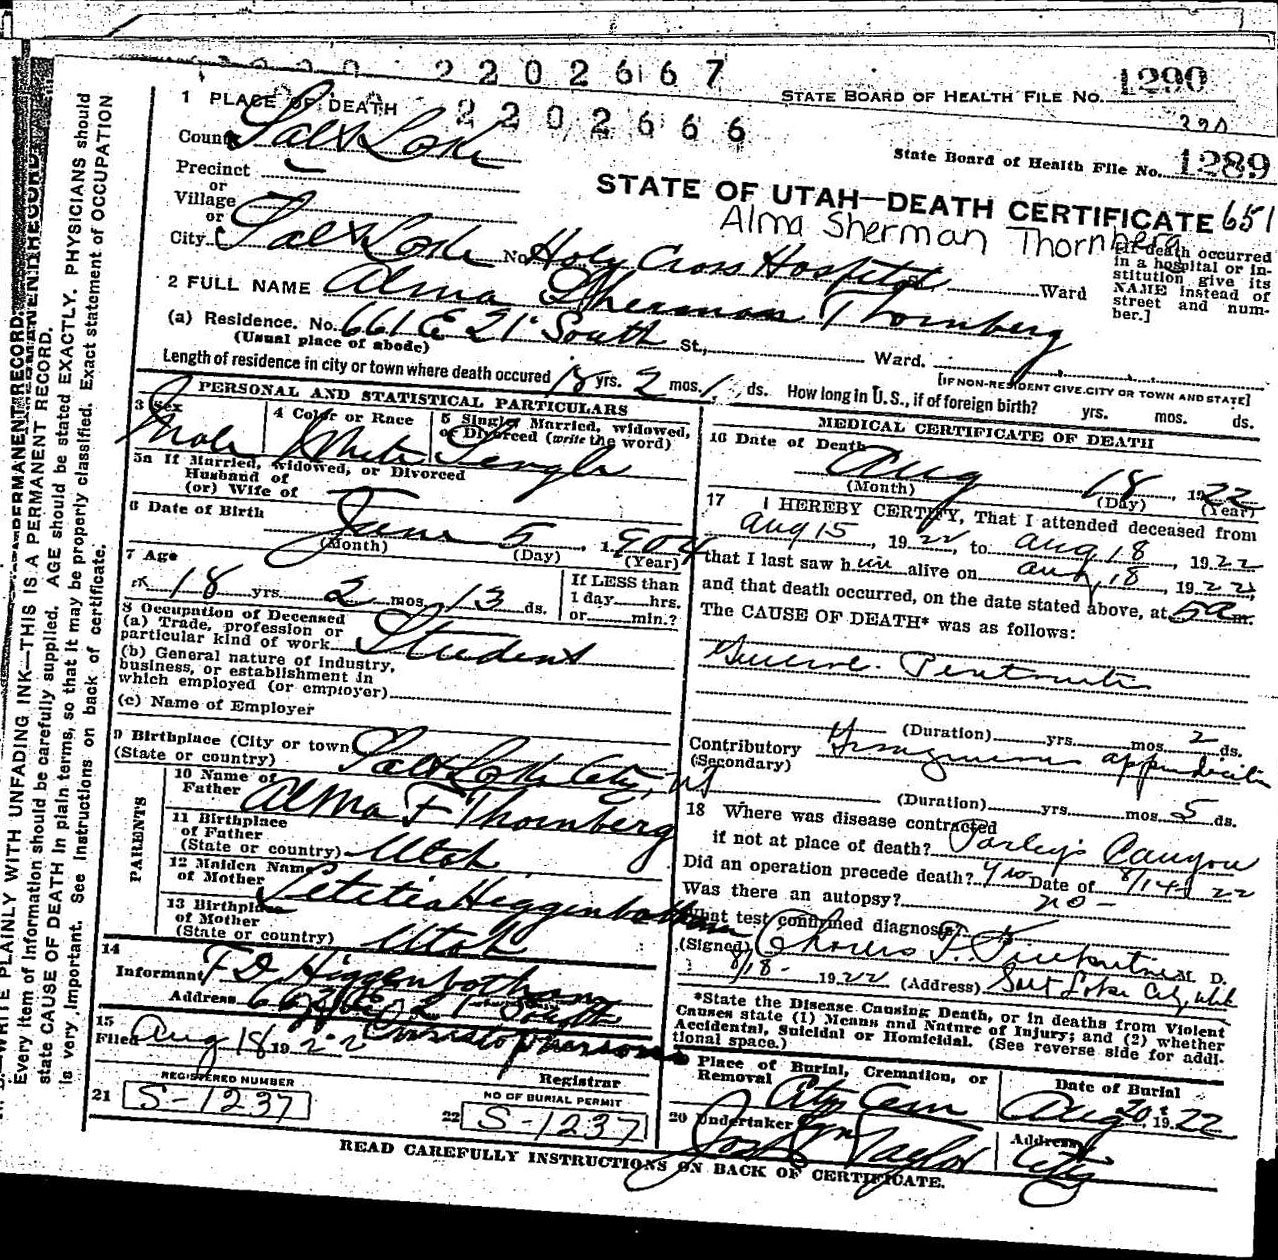 2202667
STATE BOARD OF HEALTH FILE NO. 1290
1 PLACE OF DEATH 2202666
State Board of Health File No. 1289
County Salt Lake
Precinct
or
Village
or
STATE OF UTAH—DEATH CERTIFICATE 651
Alma Sherman Thornberg
City Salt Lake No. Holy Cross Hospital Ward
[If death occurred in a hospital or institution give its NAME instead of street and number.]
2 FULL NAME Alma Sherman Thornberg
(a) Residence. No. 661 E 21st South St., Ward.
(Usual place of abode)
[IF NON-RESIDENT GIVE CITY OR TOWN AND STATE]
Length of residence in city or town where death occured 18 yrs. 2 mos. ds. How long in U.S., if of foreign birth? yrs. mos. ds.
PERSONAL AND STATISTICAL PARTICULARS
3 Sex Male
4 Color or Race White
5 Single, Married, widowed, or Divorced (write the word) Single
5a If Married, widowed, or Divorced
Husband of
(or) Wife of
6 Date of Birth June 5, 1904
(Month) (Day) (Year)
7 Age 18 yrs. 2 mos. 13 ds.
If LESS than
1 day hrs.
or min.?
8 Occupation of Deceased
(a) Trade, profession or
particular kind of work Student
(b) General nature of industry,
business, or establishment in
which employed (or employer)
(c) Name of Employer
9 Birthplace (City or town) Salt Lake City, Ut
(State or country)
PARENTS
10 Name of
Father Alma F Thornberg
11 Birthplace
of Father
(State or country) Utah
12 Maiden Name
of Mother Letetia Higgenbotham
13 Birthplace
of Mother
(State or country) Utah
14
Informant F D Higgenbotham
Address 21st South
15
Filed Aug 18 1922
Registrar
REGISTERED NUMBER
21 S-1237
NO OF BURIAL PERMIT
22 S-1237
MEDICAL CERTIFICATE OF DEATH
16 Date of Death Aug 18, 1922
(Month) (Day) (Year)
17 I HEREBY CERTIFY, That I attended deceased from
Aug 15, 1922, to Aug 18, 1922
that I last saw him alive on Aug 18, 1922,
and that death occurred, on the date stated above, at 5 a m.
The CAUSE OF DEATH* was as follows:
General Peritonitis
(Duration) yrs. mos. 2 ds.
Contributory Gangrenous appendicitis
(Secondary)
(Duration) yrs. mos. 5 ds.
18 Where was disease contracted
if not at place of death? Parley's Canyon
Did an operation precede death? yes Date of 8/14 22
Was there an autopsy? no -
What test confirmed diagnosis?
(Signed) M. D.
8/18 - 1922 (Address) Salt Lake City, Utah
*State the Disease Causing Death, or in deaths from Violent
Causes state (1) Means and Nature of Injury; and (2) whether
Accidental, Suicidal or Homicidal. (See reverse side for additional space.)
Place of Burial, Cremation, or
Removal City Cem
Date of Burial
Aug 20 1922
20 Undertaker Jos Wm Taylor
Address City
READ CAREFULLY INSTRUCTIONS ON BACK OF CERTIFICATE.
WRITE PLAINLY WITH UNFADING INK—THIS IS A PERMANENT RECORD.
Every item of information should be carefully supplied. AGE should be stated EXACTLY. PHYSICIANS should
state CAUSE OF DEATH in plain terms, so that it may be properly classified. Exact statement of OCCUPATION
is very important. See instructions on back of certificate.